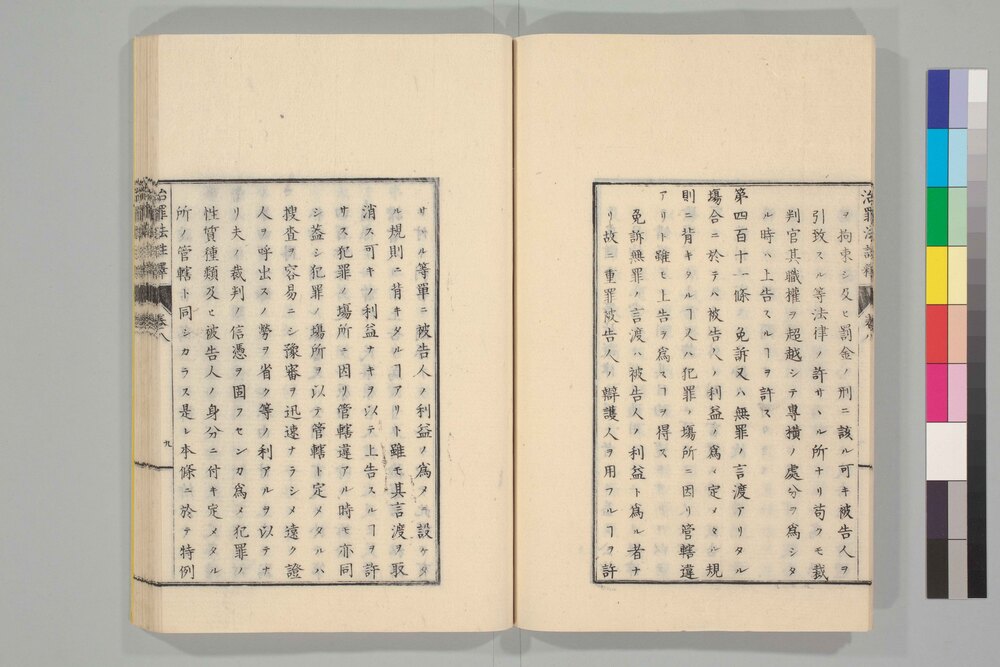 ヲ拘束シ及ヒ罰金ノ刑ニ該ル可キ被告人ヲ
引致スル等法律ノ許サヽル所ナリ苟クモ裁
判官其職權ヲ超越シテ專横ノ處分ヲ爲シタ
ル時ハ上告スルヿヲ許ス
第四百十一條 免訴又ハ無罪ノ言渡アリタル
場合ニ於テハ被告人ノ利益ノ爲メ定メタル規
則ニ背キタルヿ又ハ犯罪ノ場所ニ因リ管轄違
アリト雖モ上告ヲ爲スヿヲ得ス
免訴無罪ノ言渡ハ被告人ノ利益ト爲ル者ナ
リ故ニ重罪被告人ノ辯護人ヲ用フルヿヲ許
サヽル等單ニ被告人ノ利益ノ爲メニ設ケタ
ル規則ニ背キタルヿアリト雖モ其言渡ヲ取
消ス可キノ利益ナキヲ以テ上告スルヿヲ許
サス犯罪ノ場所ニ因リ管轄違アル時モ亦同
シ蓋シ犯罪ノ場所ヲ以テ管轄ト定メタルハ
搜査ヲ容易ニシ豫審ヲ迅速ナラシメ遠ク證
人ヲ呼出スノ勞ヲ省ク等ノ利アルヲ以テナ
リ夫ノ裁判ノ信憑ヲ固フセンカ爲メ犯罪ノ
性質種類及ヒ被告人ノ身分ニ付キ定メタル
所ノ管轄ト同シカラス是レ本條ニ於テ特例
治罪法註釋 卷八
九